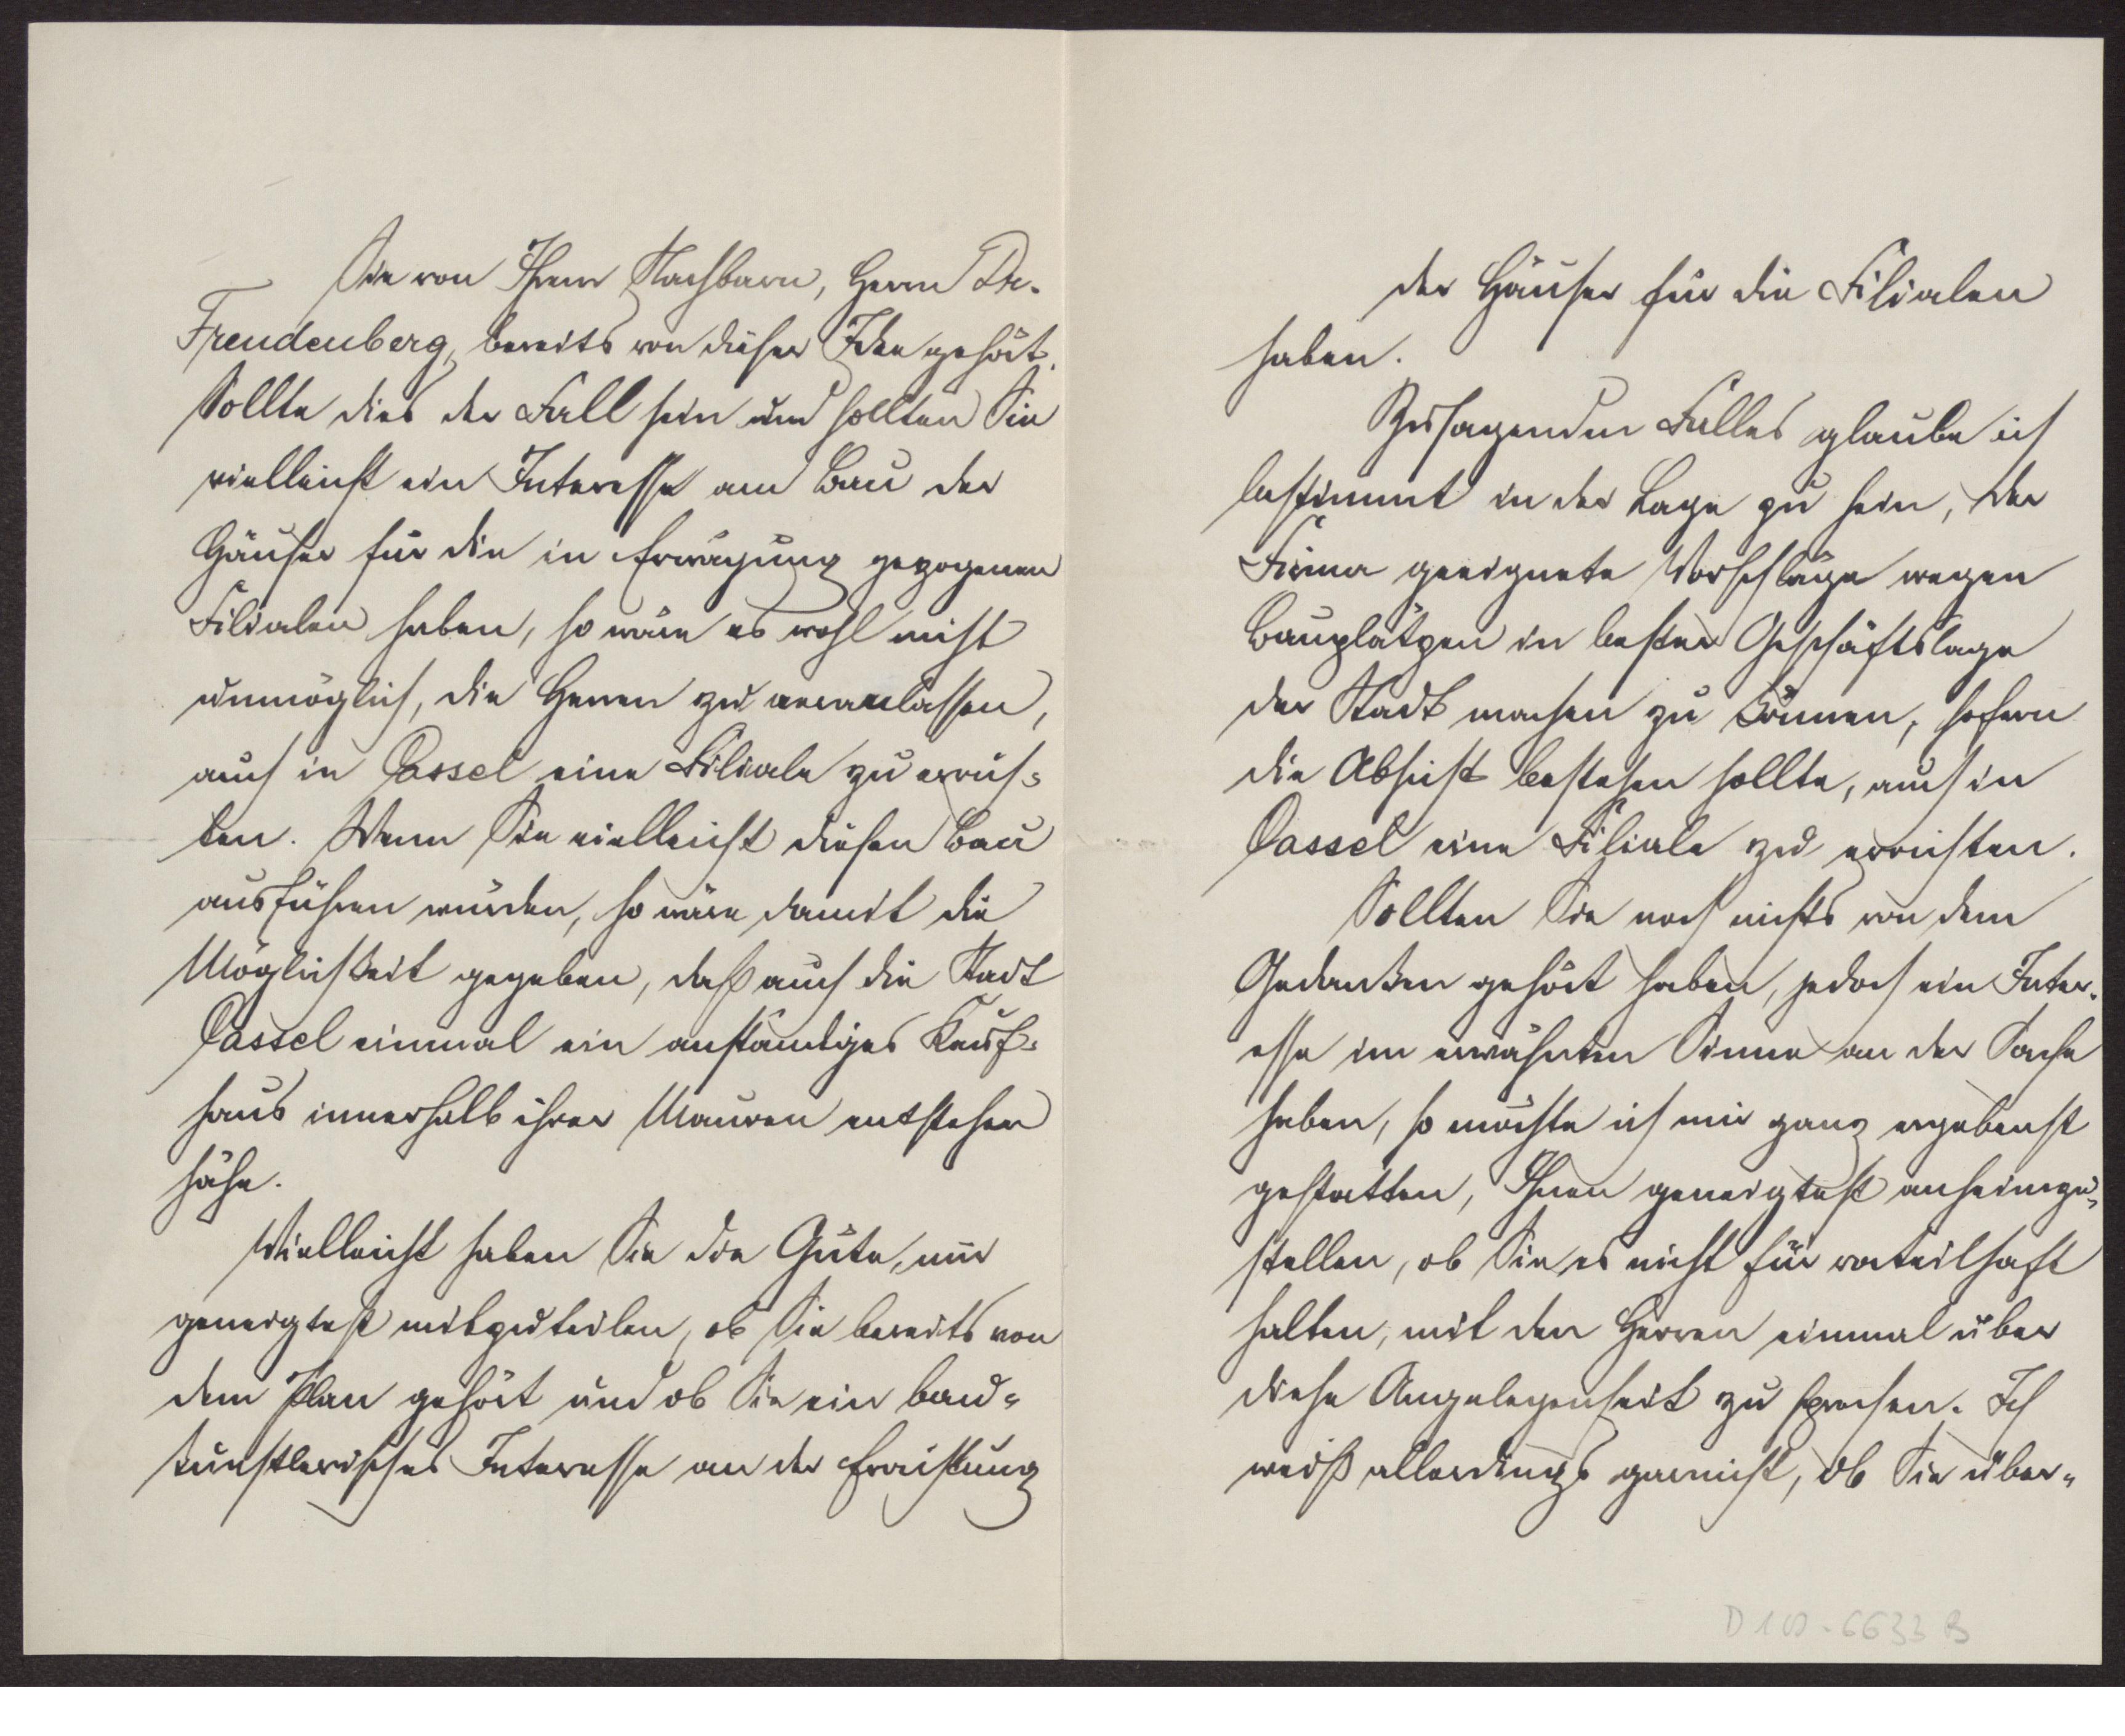 Sie von Ihrem Nachbarn, Herrn Dr.
Freudenberg, bereits von dieser Idee gehört.
Sollte dies der Fall sein und sollten Sie
vielleicht ein Interesse am Bau der
Häuser für die in Erwägung gezogenen
Filialen haben, so wäre es wohl nicht
unmöglich, die Herren zu veranlassen,
auch in Cassel eine Filiale zu errich-
ten. Wenn Sie vielleicht diesen Bau
ausführen würden, so wäre damit die
Möglichkeit gegeben, daß auch die Stadt
Cassel einmal ein anständiges Kauf-
haus innerhalb ihrer Mauern entstehen
sähe.
Vielleicht haben Sie die Güte, mir
geneigtest mitzuteilen, ob Sie bereits von
dem Plan gehört und ob Sie ein bau-
künstlerisches Interesse an der Errichtung
der Häuser für die Filialen
haben.
Zusagenden Falles glaube ich
bestimmt in der Lage zu sein, der
Firma geeignete Vorschläge wegen
Bauplätzen in bester Geschäftslage
der Stadt machen zu können, sofern
die Absicht bestehen sollte, auch in
Cassel eine Filiale zu errichten.
Sollten Sie noch nichts von dem
Gedanken gehört haben, jedoch ein Inter-
esse im erwähnten Sinne an der Sache
haben, so möchte ich mir ganz ergebenst
gestatten, Ihnen geneigtest anheimzu-
stellen, ob Sie es nicht für vorteilhaft
halten, mit den Herren einmal über
diese Angelegenheit zu sprechen. Ich
weiß allerdings garnicht, ob Sie über-
D 109-6633 B